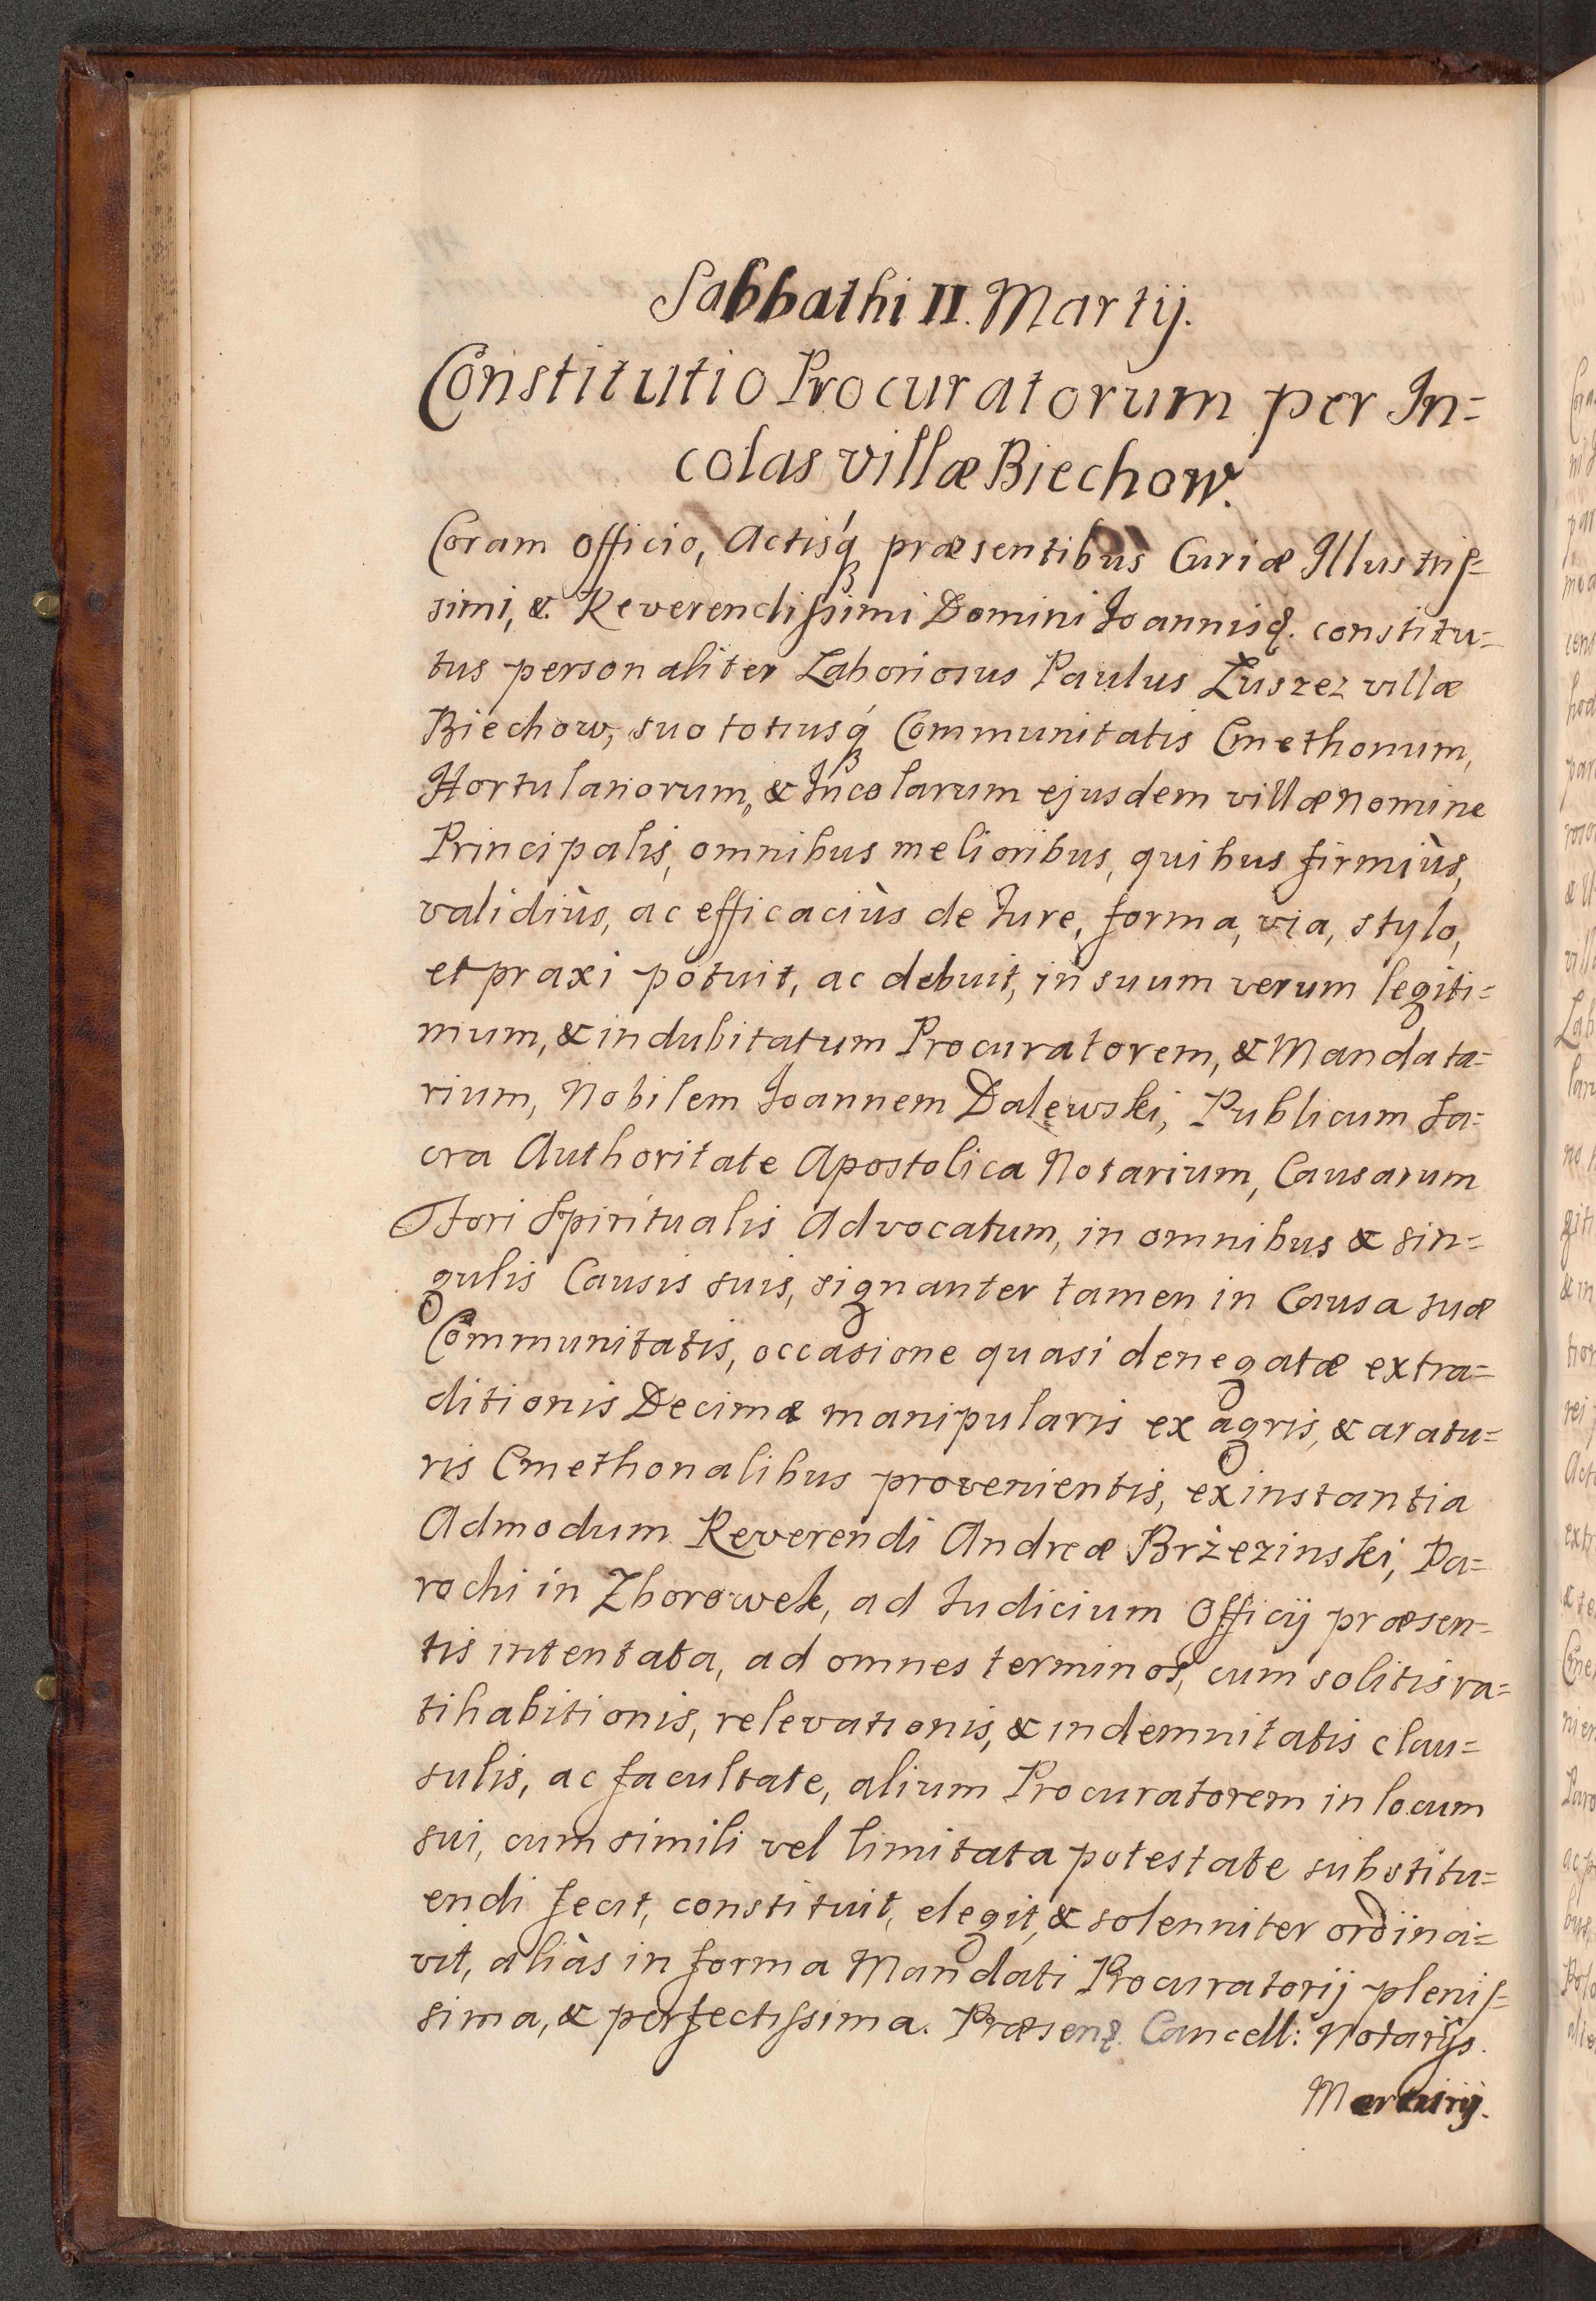 Sabbathi II. Martij.
Constitutio Procuratorum per In=
colas villæ Biechow.
Coram Officio, Actisq́ præsentibus Curiæ Illustriſ=
simi, &. Reverendiſsimi Domini Ioannisq. constitu=
tus personaliter Laboriosus Paulus Łuszez villæ
Biechow, suo totiusq́ Communitatis Cmethonum,
Hortulanorum, & Incolarum ejusdem villæ nomine
Principalis, omnibus melioribus, quibus firmiùs,
validiùs, ac efficaciùs de Iure, forma, via, stylo,
et praxi potuit, ac debuit, in suum verum legiti=
mum, & indubitatum Procuratorem, & Mandata=
rium, Nobilem Ioannem Dalewski, Publicum Sa=
cra Authoritate Apostolica Notarium, Causarum
Fori Spiritualis Advocatum, in omnibus & sin=
gulis Causis suis, signanter tamen in Causa suæ
Communitatis, occasione quasi denegatæ extra=
ditionis Decimæ manipularis ex agris, & aratu=
ris Cmethonalibus provenientis, ex instantia
Admodum Reverendi Andreæ Brżezinski, Pa=
rochi in Zborowek, ad Iudicium Officij præsen=
tis intentata, ad omnes terminos, cum solitis ra=
tihabitionis, relevationis, & indemnitatis clau=
sulis, ac facultate, alium Procuratorem in locum
sui, cum simili vel limitata potestate substitu=
endi fecit, constituit, elegit, & solenniter ordina=
vit, aliàs in forma Mandati Procuratorij pleniſ=
sima, & perfectiſsima. Præsenq. Cancell: Notarijs.
Mercurij.